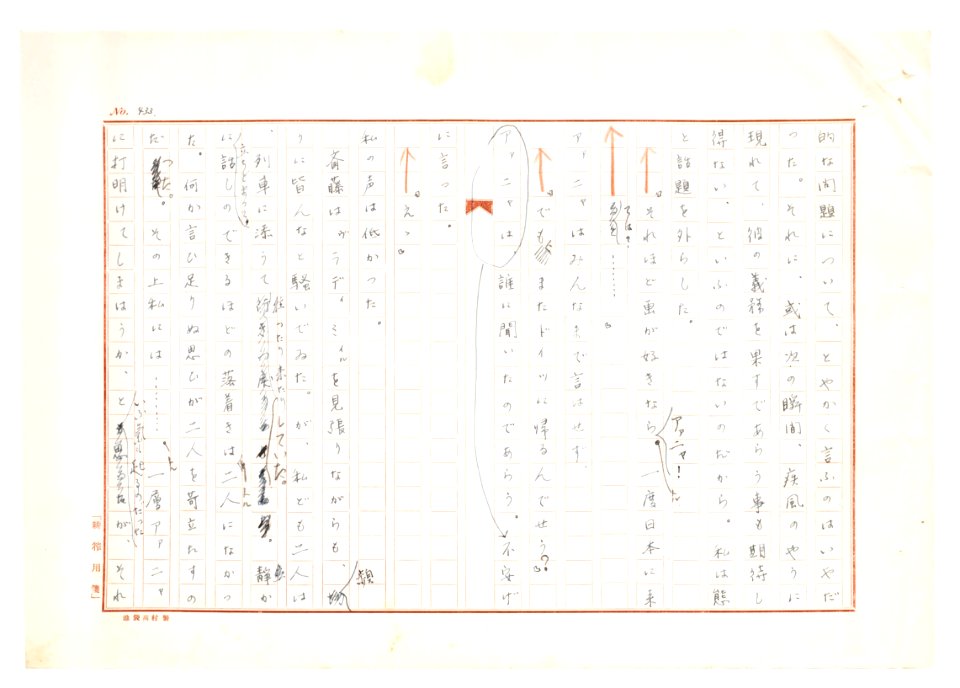 No.
的な問題について、とやかく言ふのはいやだ
つた。それに、或は次の瞬間、疾風のやうに
現れて、彼の義務を果すであらう事も期待し
得ない、といふのではないのだから。私は態
と話題を外らした。
「それほど画が好きなら、アァニャ！一度日本に来
ては……」
アァニャはみんなまで言はせず、
「でもまたドイツに帰るんでせう？」
アァニャは、誰に聞いたのであらう。不安げ
に言つた。
「えつ」
私の声は低かつた。
斎藤はヴラディミイルを見張りながらも、
うに皆んなと騒いでゐた。が、私ども二人は
、列車に添うて往つたり来たりしていた。静か
に話しのできるほどの落着きは二人になかつ
た。何か言ひ足りぬ思ひが二人を苛立たすの
だつた。その上私には……。一層アァニャ
に打明けてしまはうか、といふ気に起るのだつたが、それ
原稿用箋